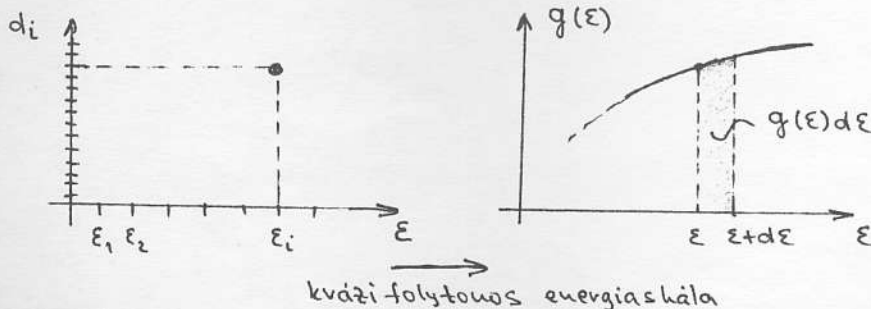 dᵢ
ε₁ ε₂ εᵢ ε
g(ε)
g(ε)dε
ε ε+dε ε
kvázi folytonos energiaskála